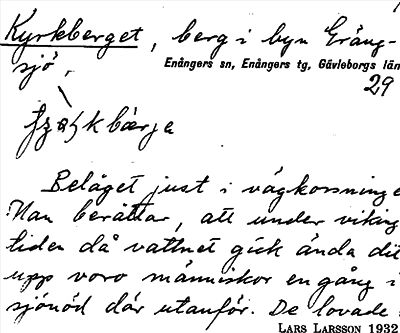 Kyrkberget, berg i byn Eräng-
sjö,
Enångers sn, Enångers tg, Gävleborgs län
29
Beläget just i vägkorsninge
Man berättar, att under viking
tiden då vattnet gick ända dit
upp voro människor en gång i
sjönöd där utanför. De lovade
LARS LARSSON 1932